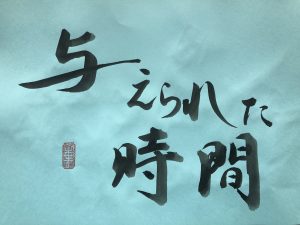 与えられた
時間